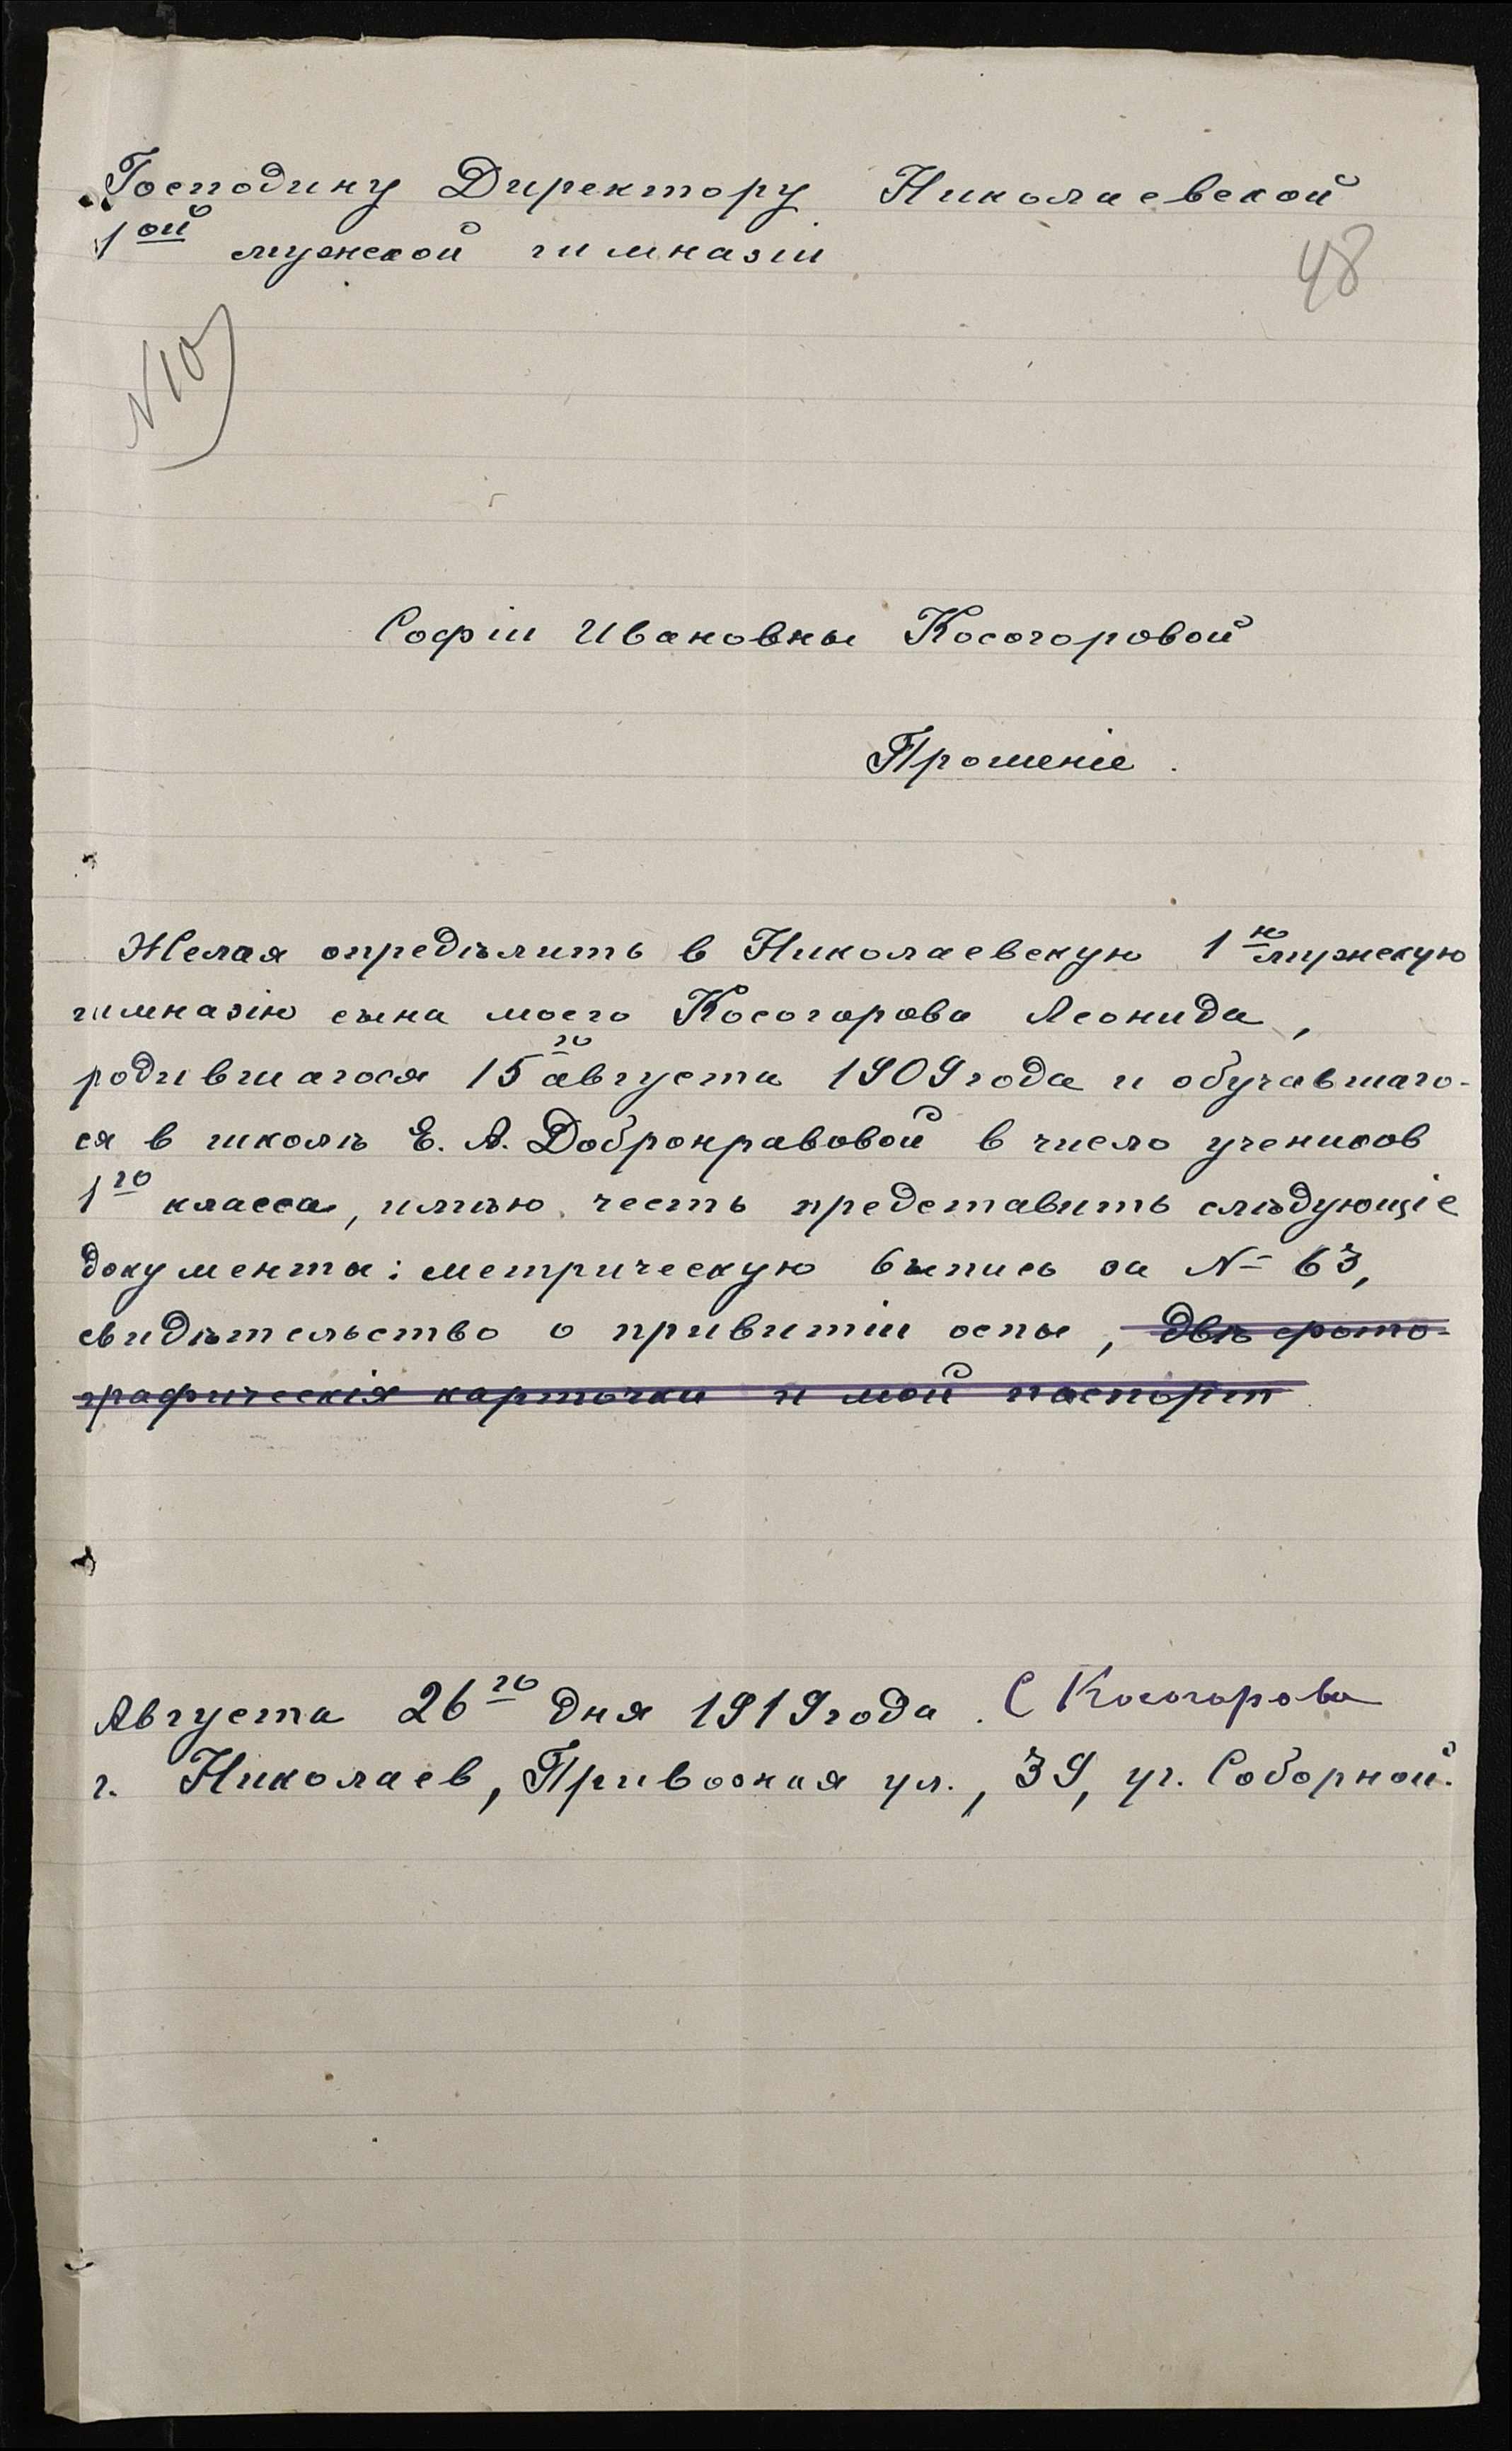 Господину Директору Николаевской
1ой мужской гимназіи
48
N 10
Софіи Ивановны Косогоровой
Прошеніе.
Желая опредѣлить в Николаевскую 1ю мужскую
гимназію сына моего Косогорова Леонида,
родившагося 15го августа 1909 года и обучавшаго-
ся в школѣ Е. А. Добронравовой в число учеников
1го класса, имѣю честь представить слѣдующіе
документы: метрическую выпись за № 63,
свидѣтельство о привитіи оспы, двѣ фото-
графическія карточки и мой паспорт.
Августа 26го дня 1919 года. С Косогорова
г. Николаев, Привозная ул., 39, уг. Соборной.